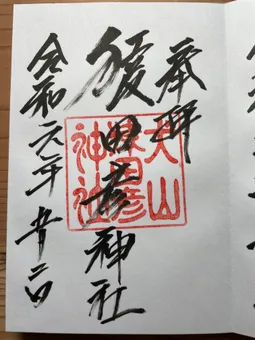 奉拝
猿田彦神社
令和元年 二日
犬山
猿田彦
神社